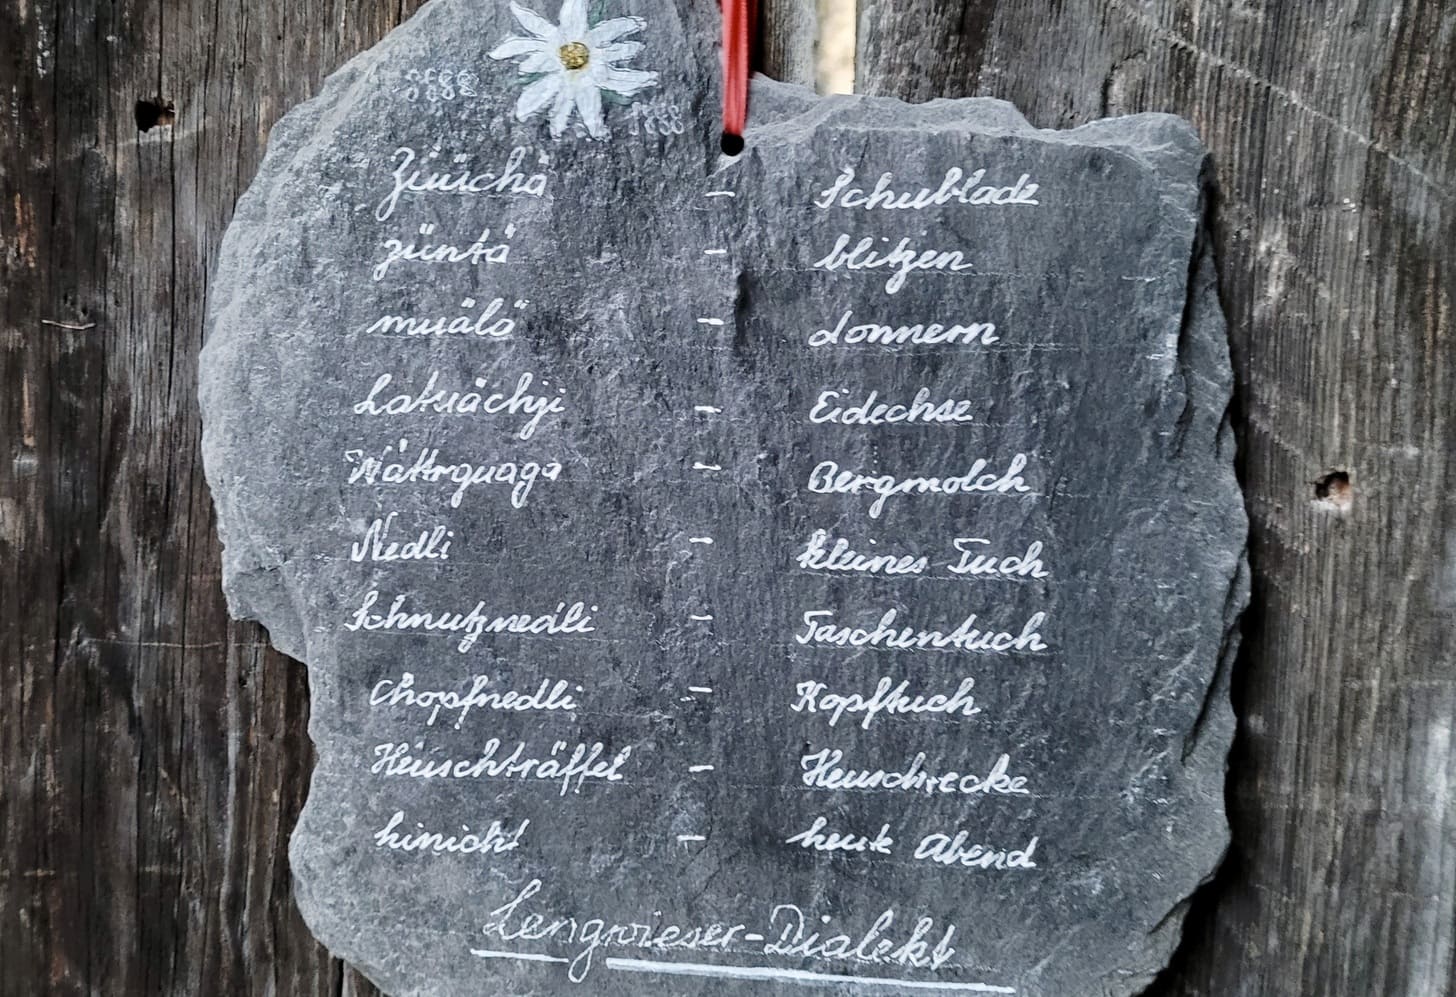 Züüschä - Schublade
züntä - blitzen
muälä - donnern
Laträchji - Eidechse
Wättrguaga - Bergmolch
Nedli - kleines Tuch
Schnutznedli - Taschentuch
Chopfnedli - Kopftuch
Heuschträffel - Heuschrecke
hinicht - heute Abend
Lengwieser-Dialekt